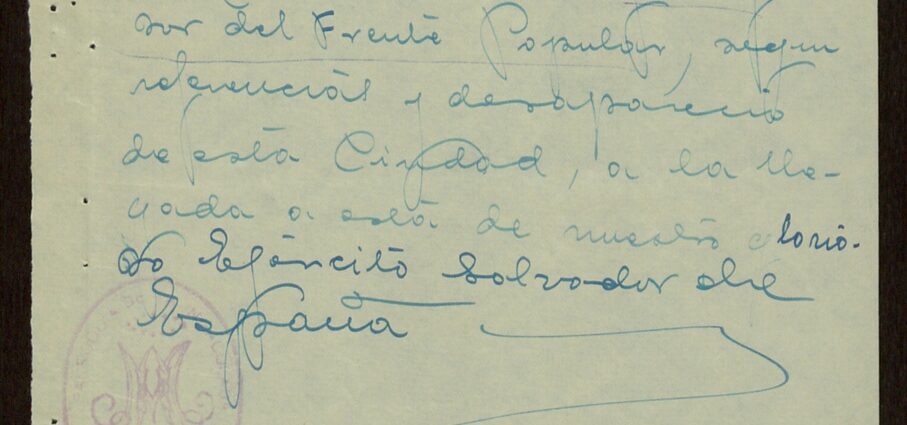 sor del Frente Popular, segun
referencias y desaparecio
de está Ciudad, a la lle-
gada a está de nuestro glorio-
so Ejército Salvador de
España